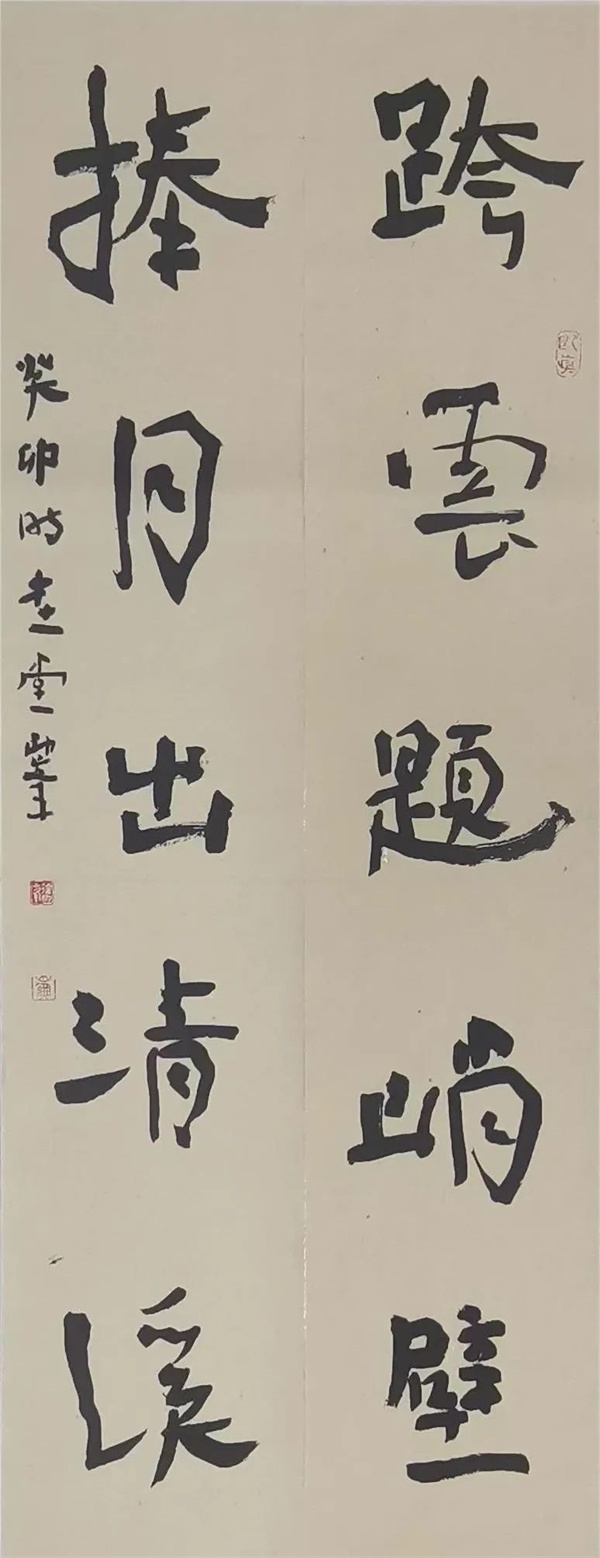 跨雲題峭壁
捧月出清溪
癸卯時